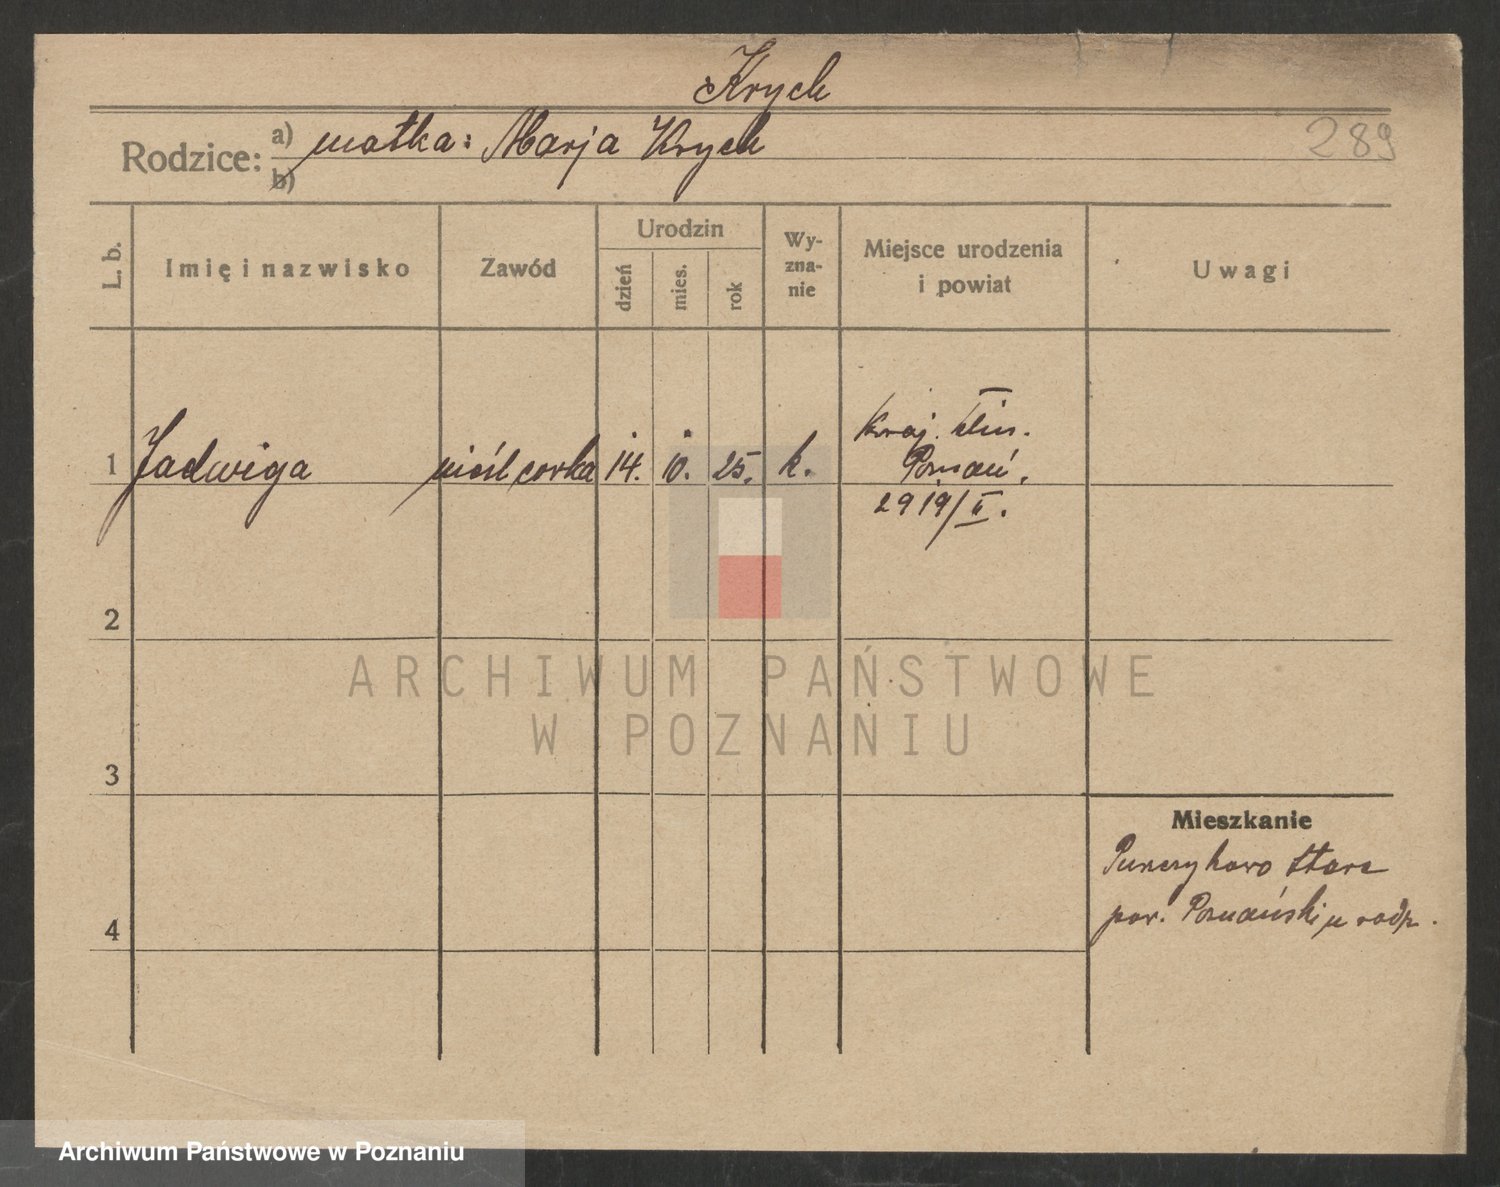 Krych
289
Rodzice:
a) matka: Marja Krych
b)
L. b.
Imię i nazwisko
Zawód
Urodzin
dzień
mies.
rok
Wy-
zna-
nie
Miejsce urodzenia
i powiat
Uwagi
1 Jadwiga córka 14. 10. 25. k.
Kraj. Klin.
Poznań.
2919/II.
2
3
4
Mieszkanie
Puszczykowo Stare
pow. Poznański
ARCHIWUM PAŃSTWOWE
W POZNANIU
Archiwum Państwowe w Poznaniu